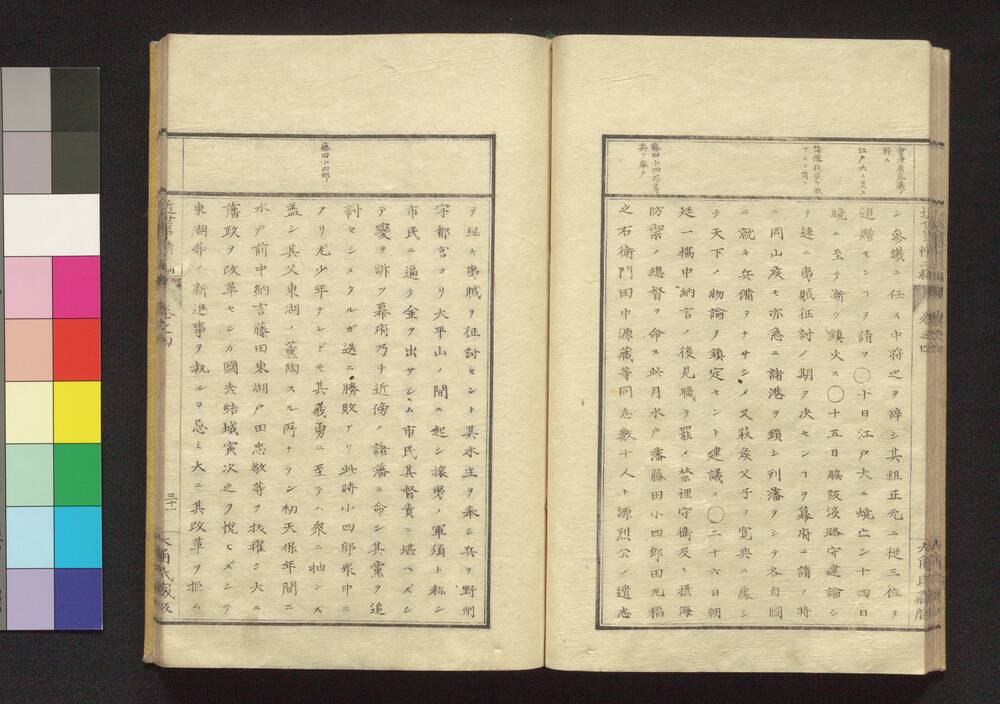 シ参議ニ任ス中将之ヲ辞シ其祖正元ニ従三位ヲ
追贈センヿヲ請フ〇十日江戸大ニ焼亡シ十四日
暁ニ至テ漸ク鎮火ス〇十五日脇阪淡路守建論シ
テ速ニ夷賊征討ノ期ヲ决センヿヲ幕府ニ請フ時
ニ岡山矦モ亦急ニ諸港ヲ鎖シ列藩ヲシテ各自國
ニ就キ兵備ヲナサシメ又萩矦父子ヲ寛典ニ處シ
テ天下ノ物論ヲ鎮定セント建議ス〇二十六日朝
廷一橋中納言ノ後見職ヲ罷メ禁裡守衛及ヒ摂海
防禦ノ總督ヲ命ス此月水户藩藤田小四郎田丸稲
之右衛門田中源蔵等同志數十人ト源烈公ノ遺志
江户大ニ災ス
藤田小四郎等
兵ヲ擧ク
ヲ継キ夷賊ヲ征討セント其木主ヲ奉シ兵ヲ野州
宇都宮ヨリ大平山ノ間ニ起シ攘夷ノ軍須ト称シ
市民ニ逼テ金ヲ出サシム市民其督責ニ堪ヘズシ
テ変ヲ訴フ幕府乃チ近傍ノ諸藩ニ命シ其黨ヲ追
討セシメケルガ迭ニ勝敗アリ此時小四郎衆中ニ
アリ尤少年ナレドモ其義勇ニ至テハ衆ニ抽ンズ
盖シ其父東湖ノ薫陶スル所ナラン初天保年間ニ
水户前中納言藤田東湖户田忠敞等ヲ抜擢シ大ニ
藩政ヲ改革センガ國老結城寅次之ヲ悦ヒズシテ
東湖等ノ新進事ヲ執ルヲ忌ミ大ニ其改革ヲ拒ム
藤田小四郎
三十一